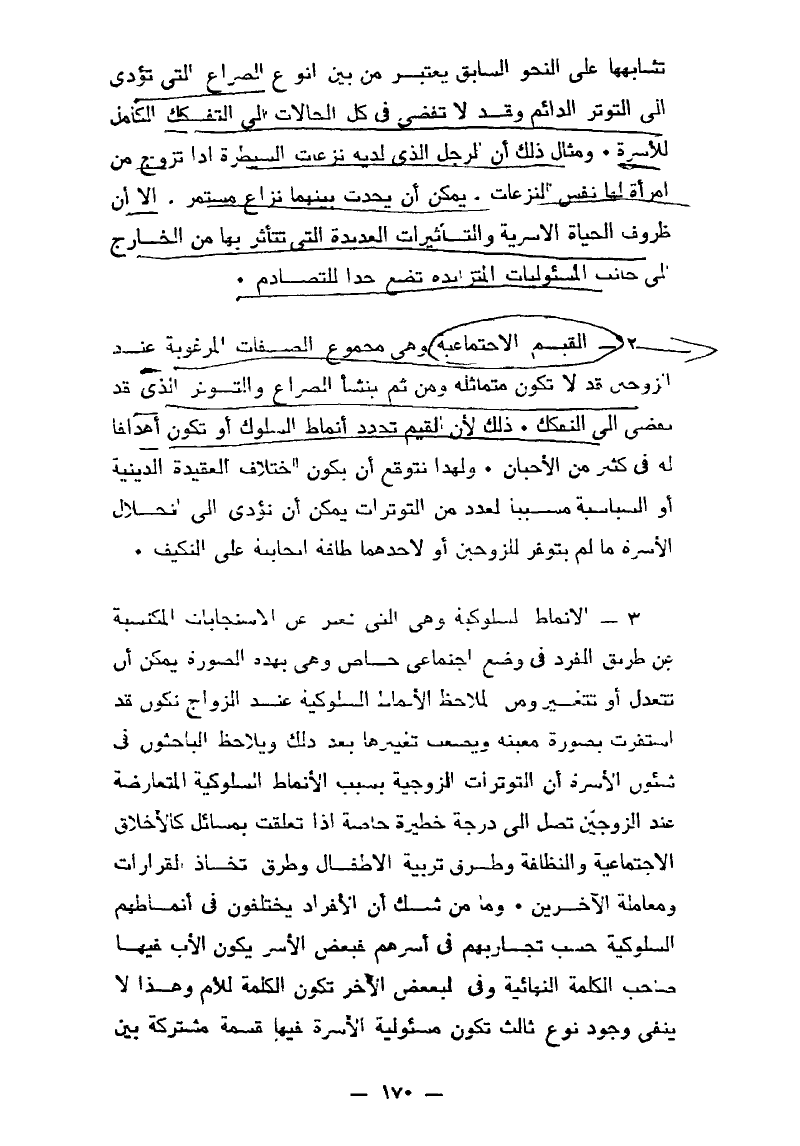 تشابهها على النحو السابق يعتبر من بين انواع الصراع التى تؤدى
الى التوتر الدائم وقد لا تفضى فى كل الحالات الى التفكك الكامل
للأسرة • ومثال ذلك أن الرجل الذى لديه نزعات السيطرة اذا تزوج من
امرأة لها نفس النزعات . يمكن أن يحدث بينهما نزاع مستمر . الا أن
ظروف الحياة الاسرية والتأثيرات العديدة التى تتأثر بها من الخارج
الى جانب المسئوليات المتزايده تضع حدا للتصادم •
٢ – القيم الاجتماعية وهى مجموع الصفات المرغوبة عند
الزوجين قد لا تكون متماثله ومن ثم ينشأ الصراع والتوتر الذى قد
يفضى الى التفكك • ذلك لأن القيم تحدد أنماط السلوك أو تكون أهدافا
له فى كثير من الأحيان • ولهذا نتوقع أن يكون اختلاف العقيدة الدينية
أو السياسية مسببا لعدد من التوترات يمكن أن تؤدى الى انحلال
الأسرة ما لم يتوفر للزوجين أو لاحدهما طاقة ايجابية على التكيف •
٣ – الانماط السلوكية وهى التى تعبر عن الاستجابات المكتسبة
عن طريق الفرد فى وضع اجتماعى خاص وهى بهذه الصورة يمكن أن
تتعدل أو تتغير ومن الملاحظ الأنماط السلوكية عند الزواج تكون قد
استقرت بصورة معينه ويصعب تغييرها بعد ذلك ويلاحظ الباحثون فى
شئون الأسرة أن التوترات الزوجية بسبب الأنماط السلوكية المتعارضة
عند الزوجين تصل الى درجة خطيرة خاصة اذا تعلقت بمسائل كالأخلاق
الاجتماعية والنظافة وطرق تربية الاطفال وطرق تخاذ القرارات
ومعاملة الآخرين • وما من شك أن الأفراد يختلفون فى أنماطهم
السلوكية حسب تجاربهم فى أسرهم فبعض الأسر يكون الأب فيها
صاحب الكلمة النهائية وفى البعض الآخر تكون الكلمة للأم وهذا لا
ينفى وجود نوع ثالث تكون مسئولية الأسرة فيها قسمة مشتركة بين
– ١٧٠ –